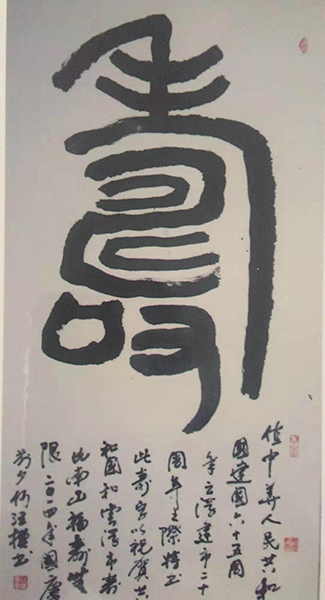 壽
值中華人民共和
國建國六十五周
年云浮建市二十
周年之際特书
此壽字以祝賀共
和國和雲浮市壽
比南山福壽無
限二〇一四年國慶
前夕何书